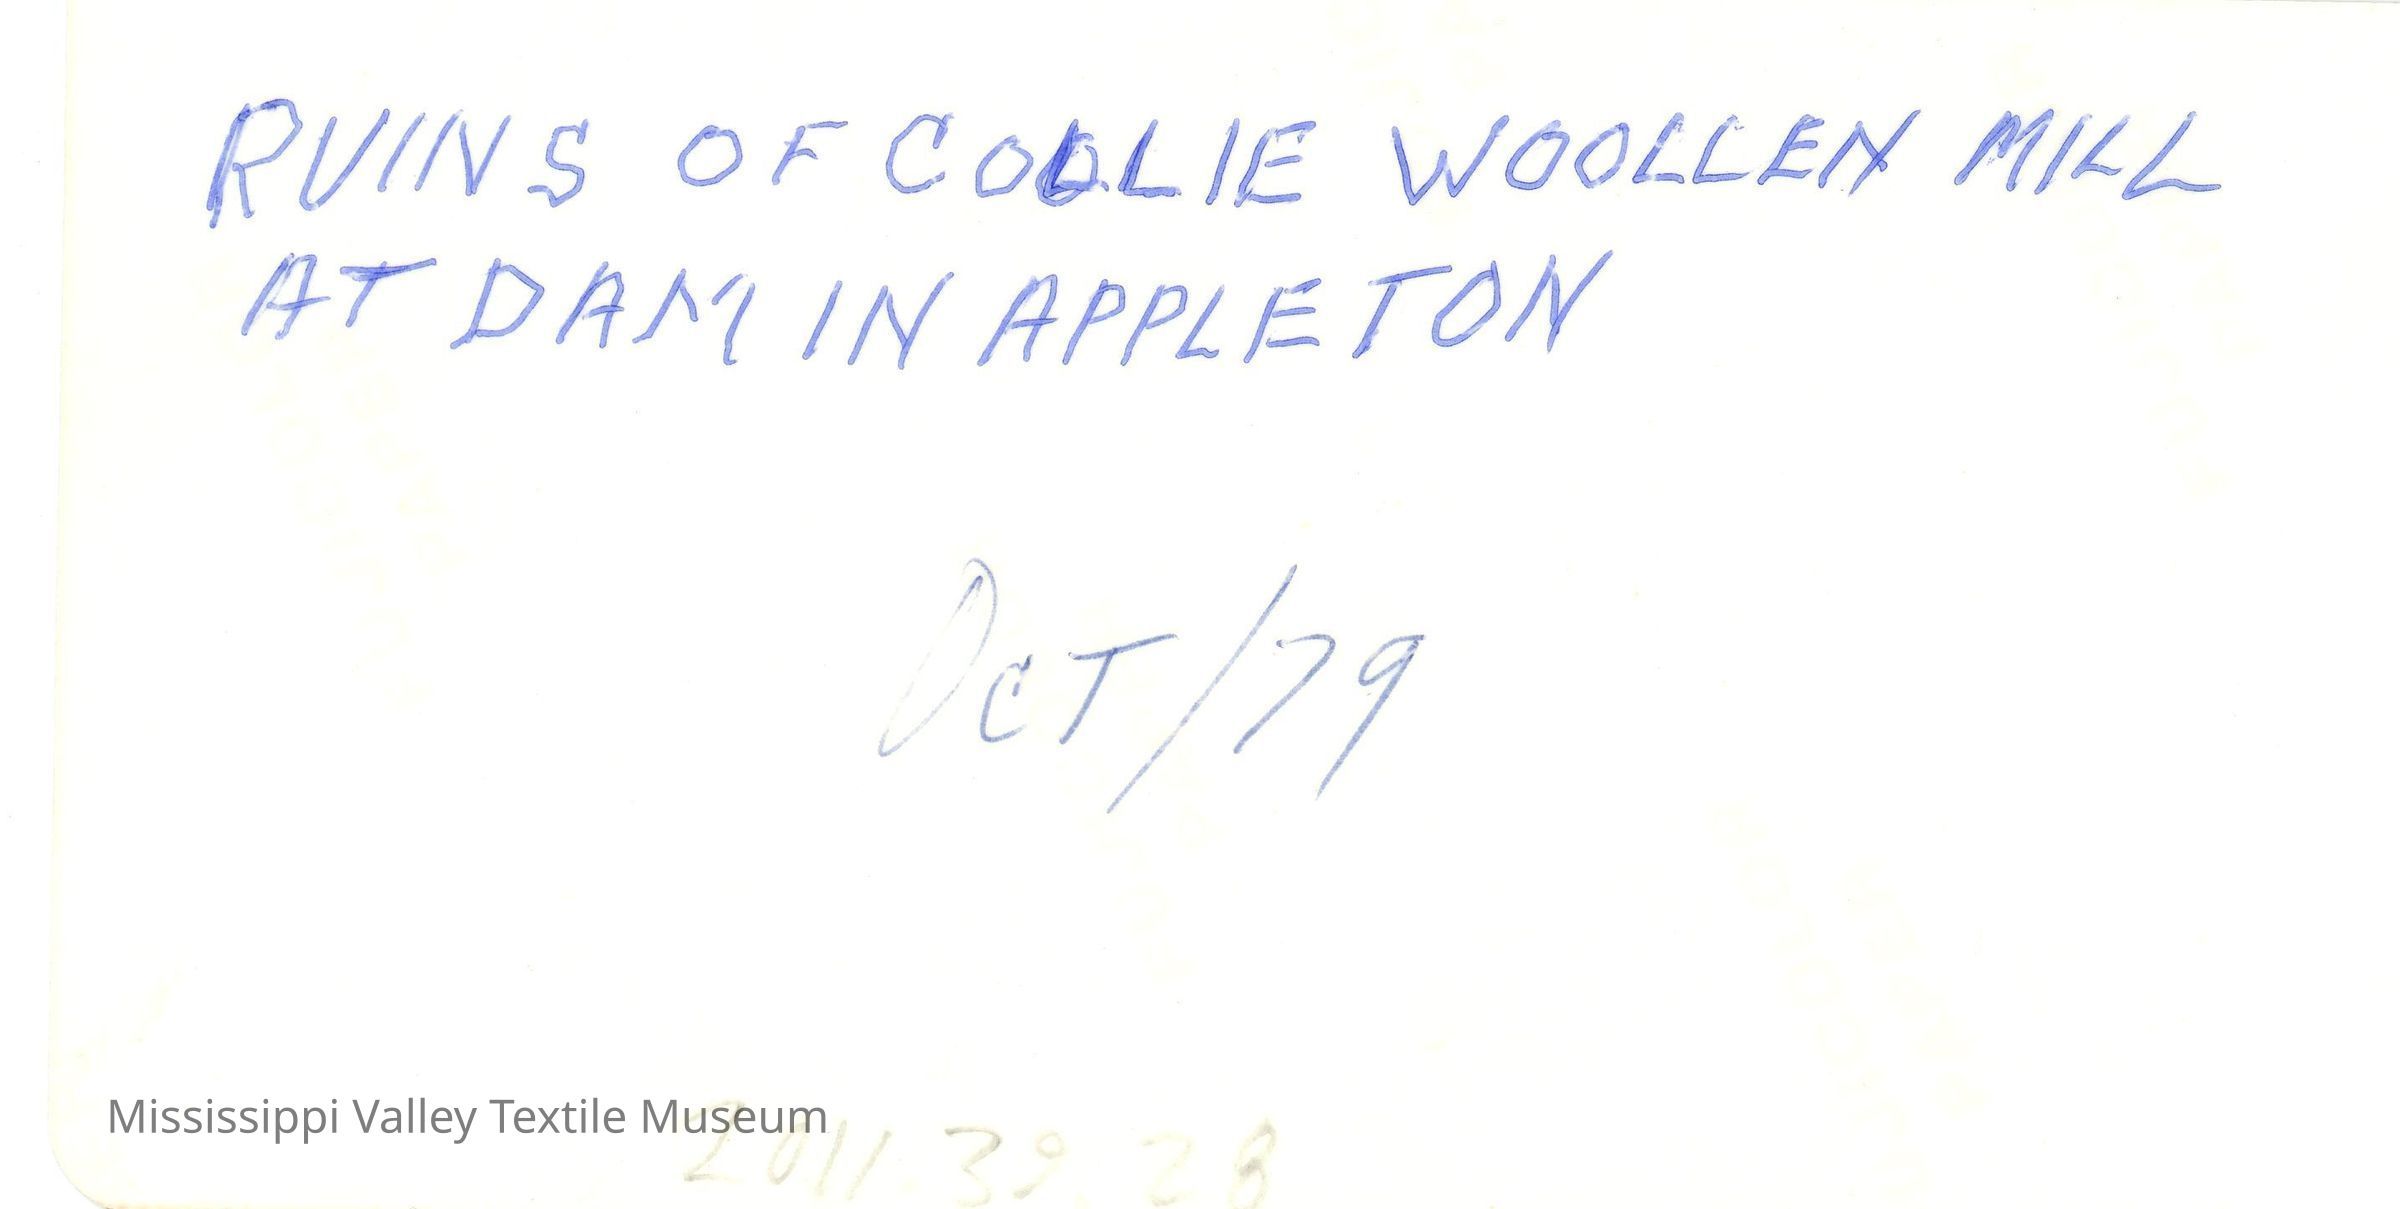 RUINS OF COLLIE WOOLLEN MILL
AT DAM IN APPLETON
OCT/79
Mississippi Valley Textile Museum
2011.39.28